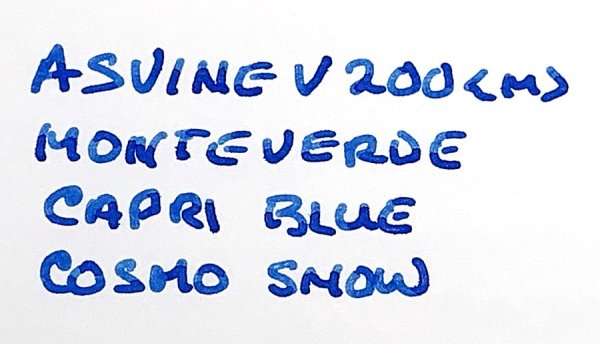 ASVINE V200 <M>
MONTEVERDE
CAPRI BLUE
COSMO SNOW